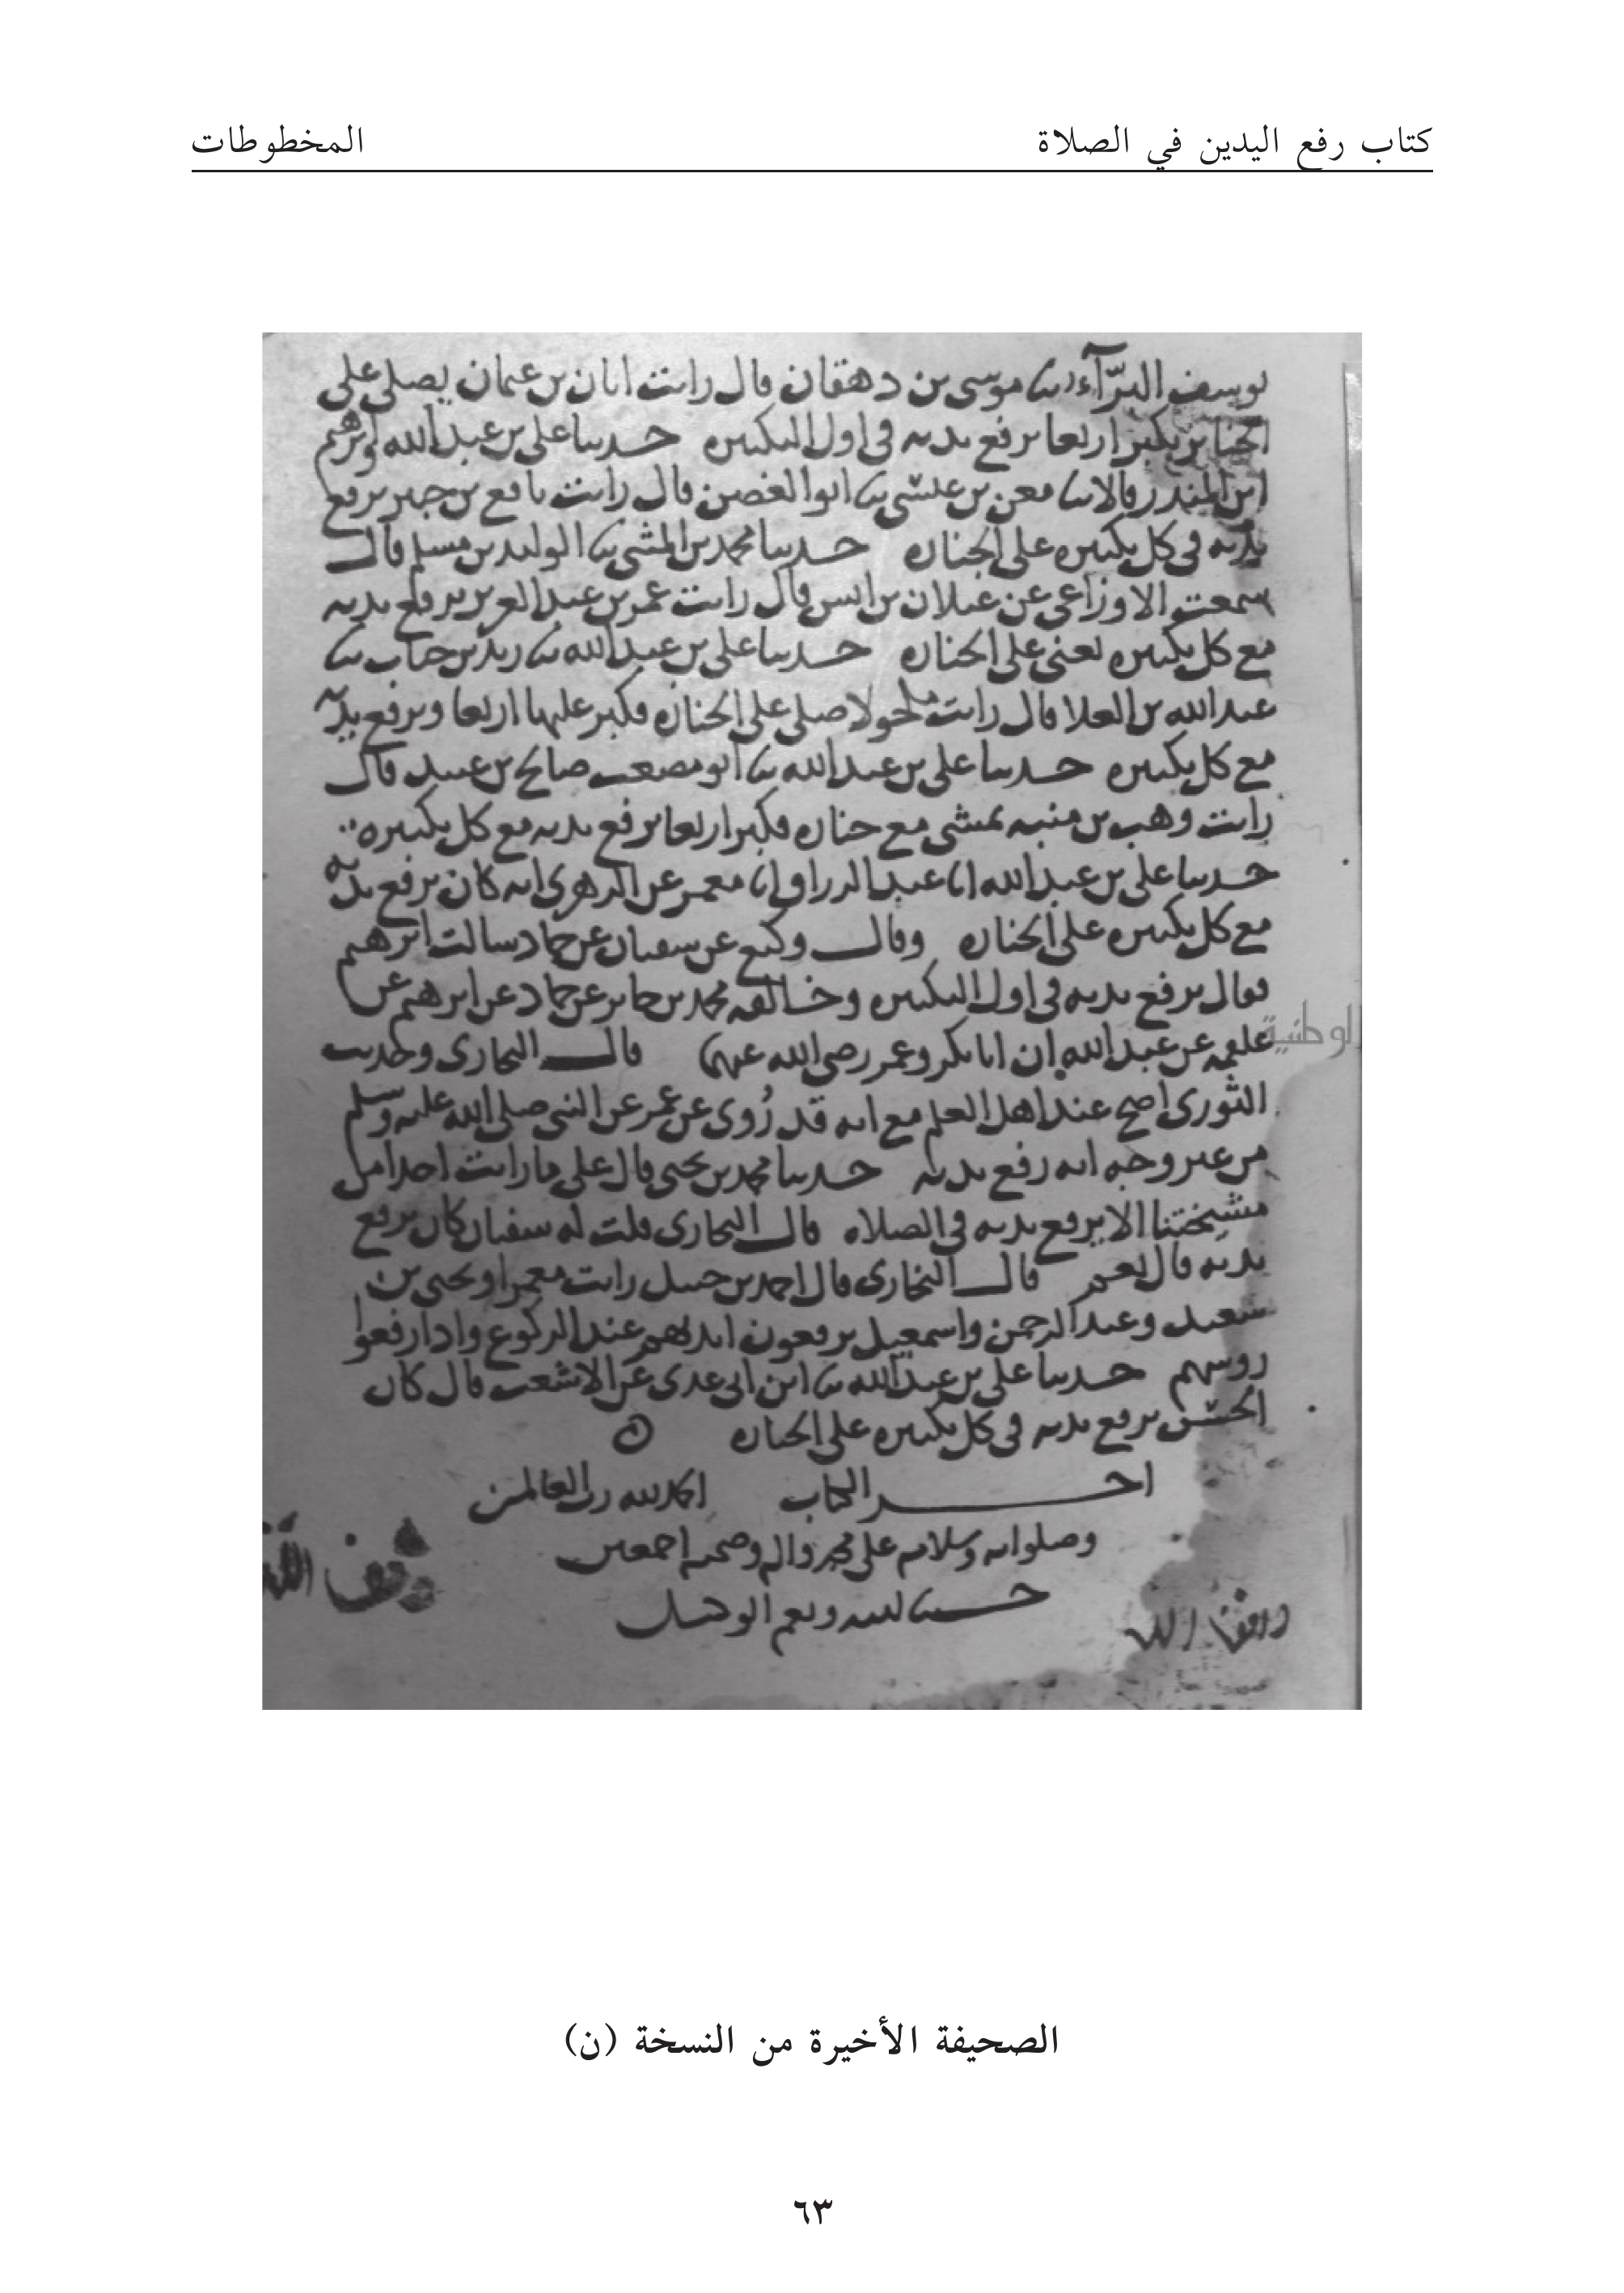 كتاب رفع اليدين في الصلاة
المخطوطات
يوسف البرّآء ثنا موسى بن دهقان قال رايت ابان بن عثمان يصلي على
الجنايز يكبر اربعا يرفع يديه في اول التكبيره حدثنا علي بن عبد الله وابرهيم
ابن المنذر قالا ثنا معن بن عيسى ثنا ابو الغصن قال رايت نافع بن جبير يرفع
يديه في كل تكبيره على الجنازه حدثنا محمد بن المثنى ثنا الوليد بن مسلم قال
سمعت الاوزاعي عن غيلان بن انس قال رايت عمر بن عبد العزيز يرفع يديه
مع كل تكبيره يعني على الجنازه حدثنا علي بن عبد الله ثنا زيد بن حباب ثنا
عبد الله بن العلا قال رايت مكحولا صلى على الجنازه فكبر عليها اربعا ويرفع يديه
مع كل تكبيره حدثنا علي بن عبد الله ثنا ابو مصعب صالح بن عبيد قال
رايت وهب بن منبه يمشي مع جنازه فكبر اربعا يرفع يديه مع كل تكبيره
حدثنا علي بن عبد الله انا عبد الرزاق انا معمر عن الزهري انه كان يرفع يديه
مع كل تكبيره على الجنازه وقال وكيع عن سفيان عن حماد سالت ابرهيم
فقال يرفع يديه في اول التكبيره وخالفه محمد بن جابر عن حماد عن ابرهيم عن
علقمه عن عبد الله ان ابا بكر وعمر رضي الله عنهما قال البخاري وحديث
الوطنية
الثوري اصح عند اهل العلم مع انه قد رُوي عن عمر عن النبي صلى الله عليه وسلم
من غير وجه انه رفع يديه حدثنا محمد بن يحيى قال علي ما رايت احدا من
مشيختنا الا يرفع يديه في الصلاه قال البخاري قلت له سفيان كان يرفع
يديه قال نعم قال البخاري قال احمد بن حنبل رايت معمرا ويحيى بن
سعيد وعبد الرحمن واسمعيل يرفعون ايديهم عند الركوع واذا رفعوا
روسهم حدثنا علي بن عبد الله ثنا ابن ابي عدي عن الاشعث قال كان
الحسن يرفع يديه في كل تكبيره على الجنازه
اخر الكتاب الحمد لله رب العالمين
وصلواته وسلامه على محمد واله وصحبه اجمعين
حسبنا الله ونعم الوكيل
وقف الله
الصحيفة الأخيرة من النسخة (ن)
٦٣